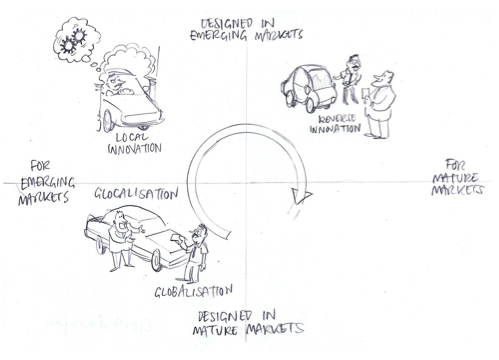 DESIGNED IN
EMERGING MARKETS
LOCAL
INNOVATION
REVERSE
INNOVATION
FOR
EMERGING
MARKETS
FOR
MATURE
MARKETS
GLOCALISATION
GLOBALISATION
DESIGNED IN
MATURE MARKETS